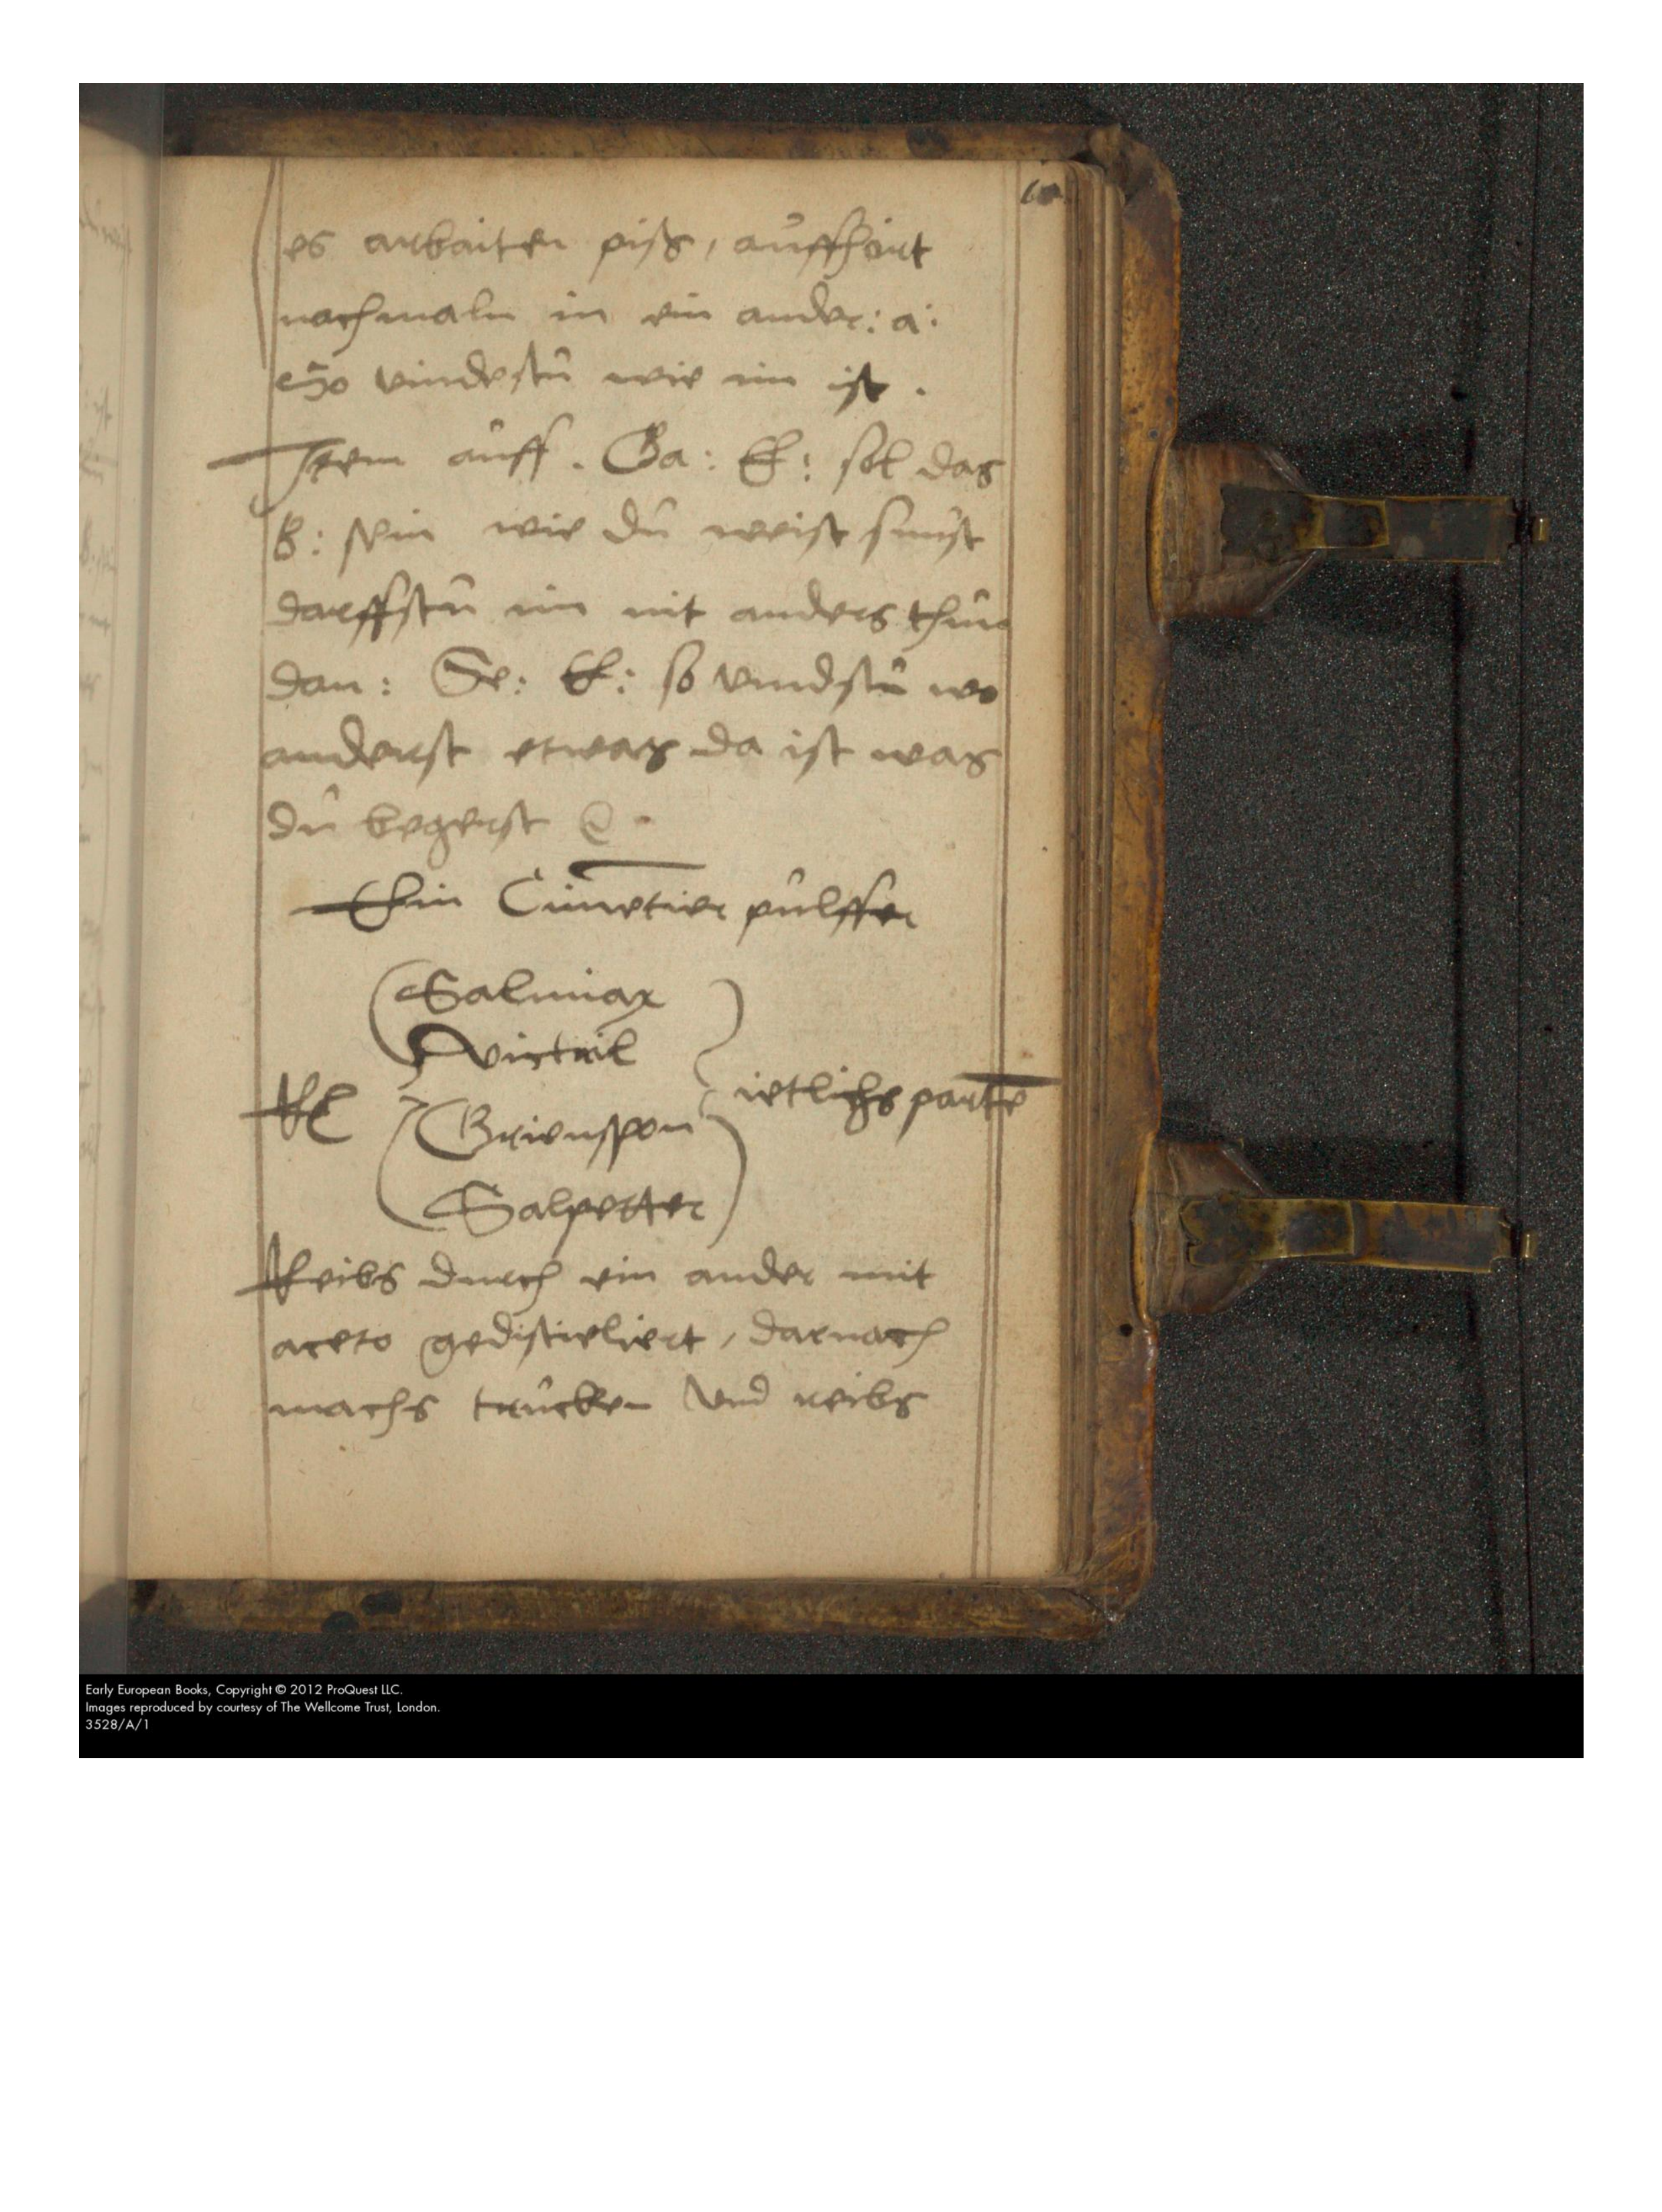 60
es arbaiten piß, auffhört
nachmaln in ein ander: a:
so vindestu wie im ist.
Item auff. Ga: E: sol das
B: sein wie du weist sunst
darffstu im nit anders thun
dan: Se: E: so vindstu wo
anderst etwas da ist was
du begerst
Ein Cimetier pulffer
Salmiax
Victril
Rc Grienspon ietlichs parte
Salpetter
Reibs durch ein ander mit
aceto gedistieliert, darnach
machs trucken vnd reibs
Early European Books, Copyright © 2012 ProQuest LLC.
Images reproduced by courtesy of The Wellcome Trust, London.
3528/A/1